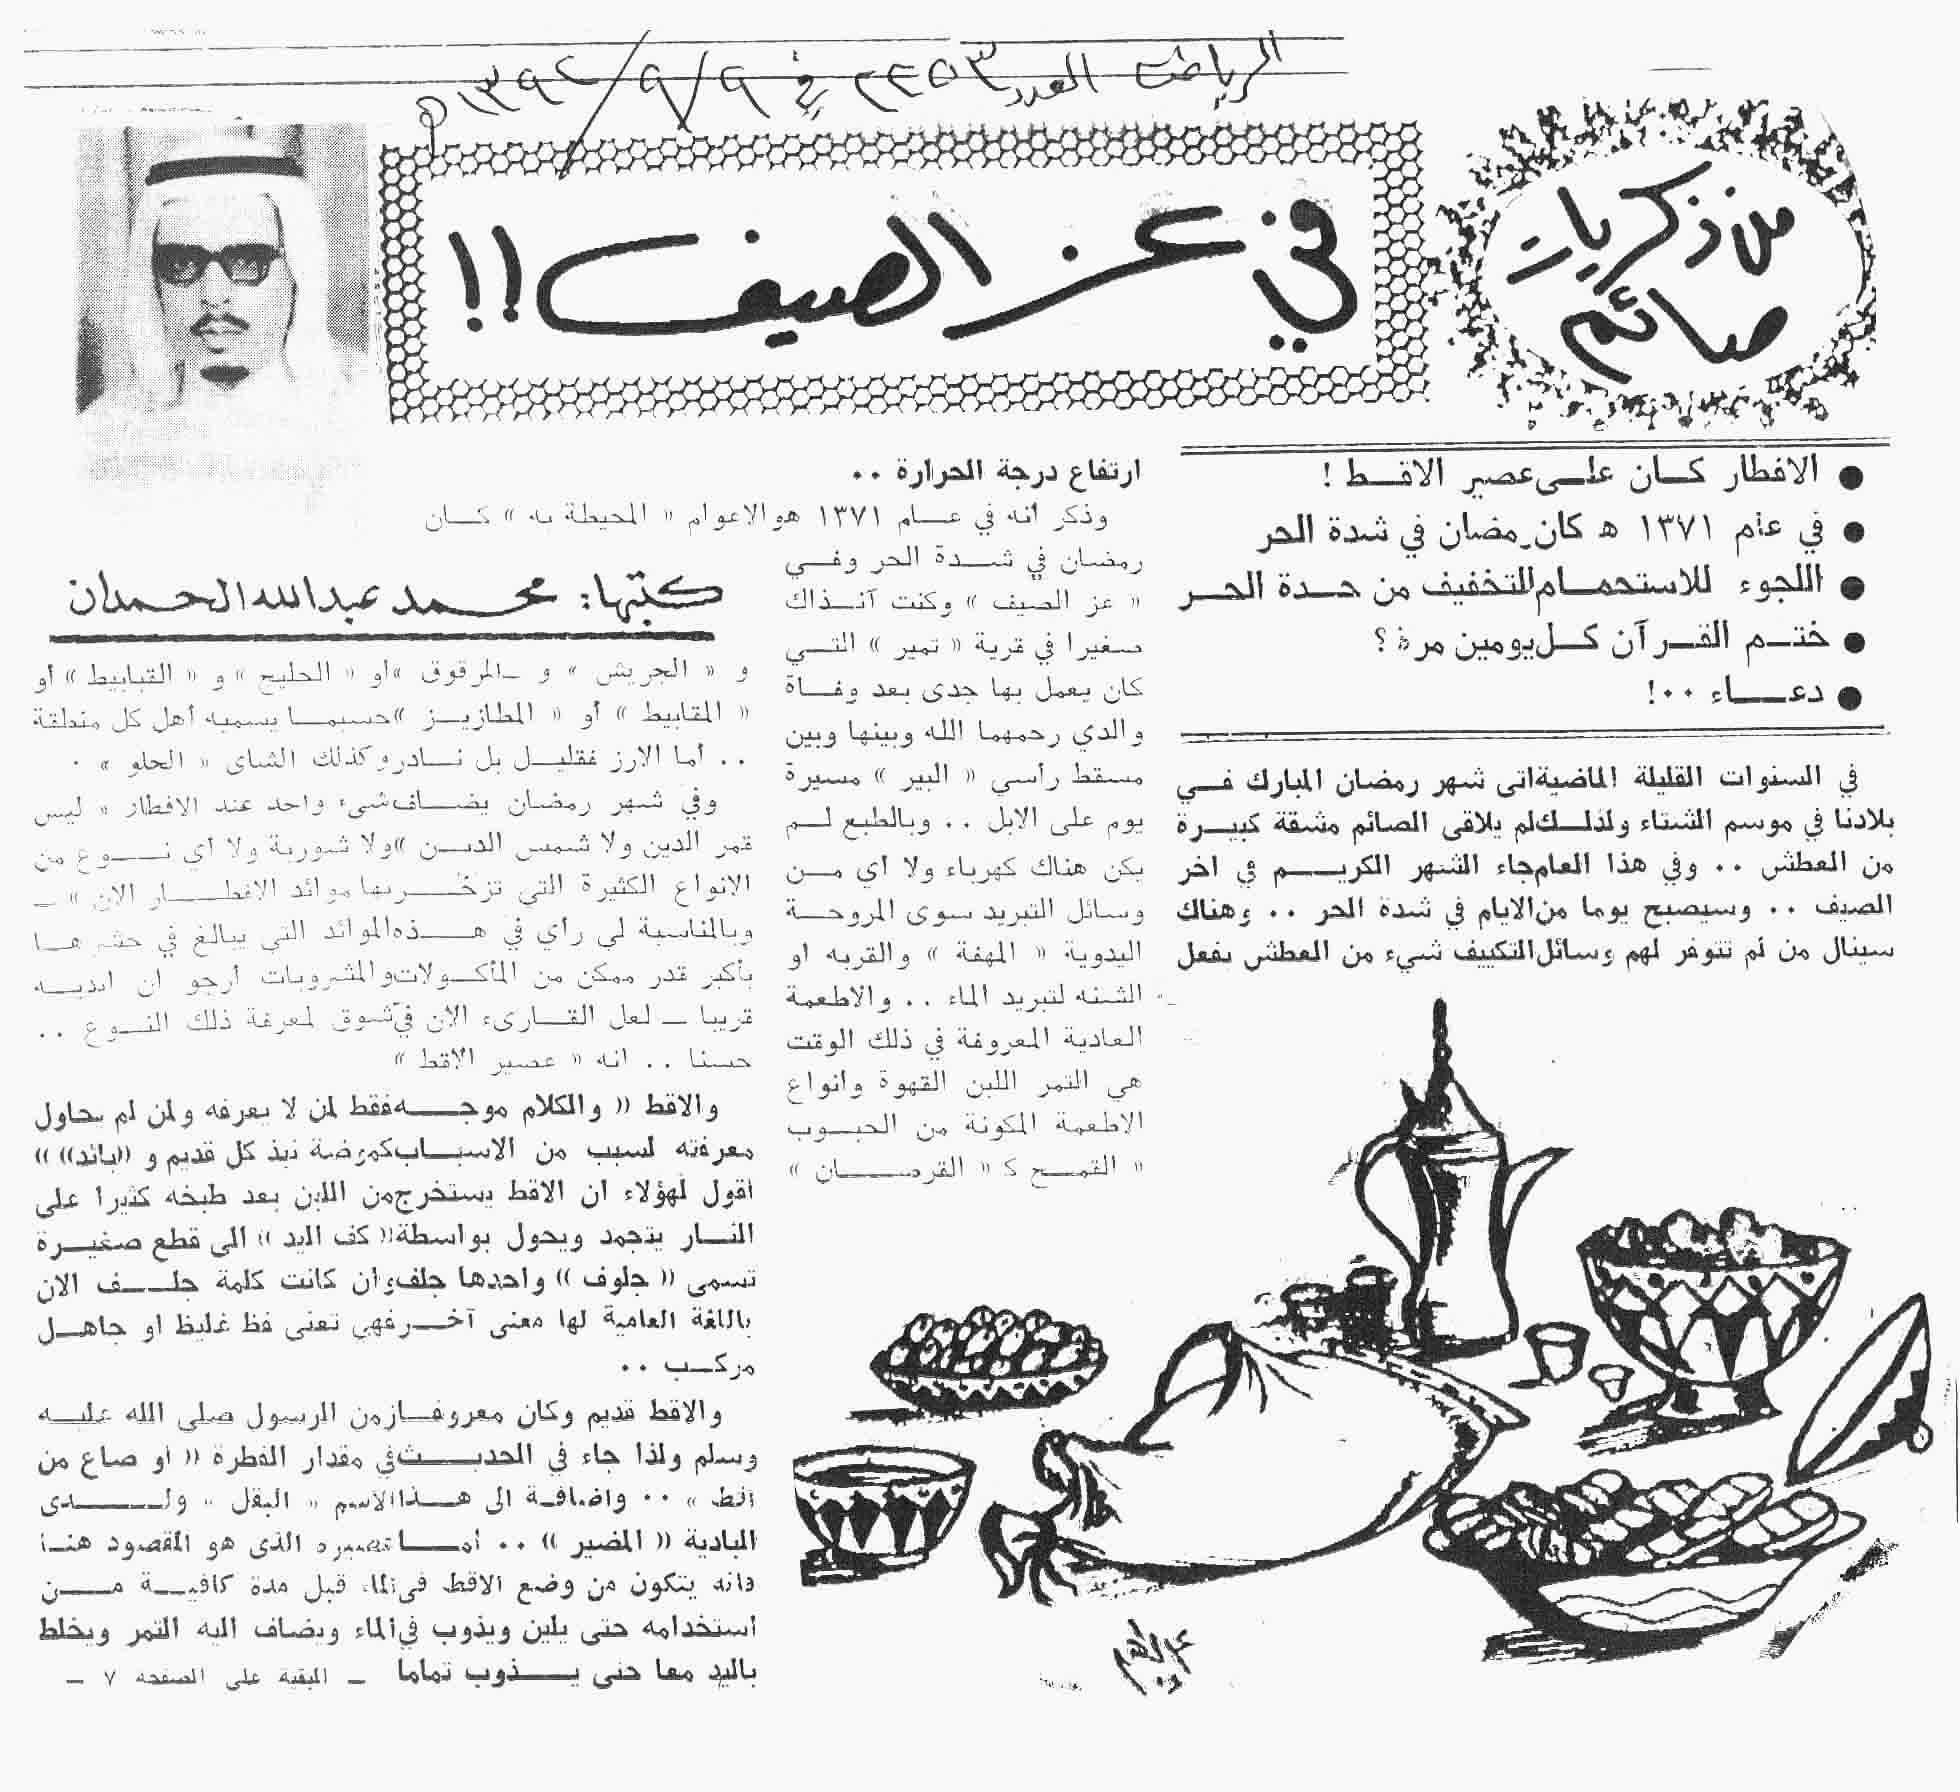 الرياض العدد ٢٢٥٣ في ٩/٩/١٣٩٢ه
من ذكريات
صائم
في عز الصيف !!
● الافطار كان على عصير الاقط !
● في عام ١٣٧١ ه كان رمضان في شدة الحر
● اللجوء للاستحمام للتخفيف من حدة الحر
● ختم القرآن كل يومين مرة ؟
● دعاء ..!
في السنوات القليلة الماضية اتى شهر رمضان المبارك في
بلادنا في موسم الشتاء ولذلك لم يلاقى الصائم مشقة كبيرة
من العطش .. وفي هذا العام جاء الشهر الكريم في اخر
الصيف .. وسيصبح يوما من الايام في شدة الحر .. وهناك
سينال من لم تتوفر لهم وسائل التكييف شيء من العطش بفعل
ارتفاع درجة الحرارة ..
وذكر أنه في عام ١٣٧١ هو الاعوام « المحيطة به » كان
رمضان في شدة الحر وفي
« عز الصيف » وكنت آنذاك
صغيرا في قرية « تمير » التي
كان يعمل بها جدى بعد وفاة
والدي رحمهما الله وبينها وبين
مسقط رأسي « البير » مسيرة
يوم على الابل .. وبالطبع لم
يكن هناك كهرباء ولا اي من
وسائل التبريد سوى المروحة
اليدوية « المهفة » والقربه او
الشنه لتبريد الماء .. والاطعمة
العادية المعروفة في ذلك الوقت
هي التمر اللبن القهوة وانواع
الاطعمة المكونة من الحبوب
« القمح ك « القرصان »
كتبها: محمد عبدالله الحمدان
و « الجريش » و ـالمرقوق »او « الحليج » و « القبابيط » أو
« المقابيط » أو « المطازيز »حسبما يسميه أهل كل منطقة
.. أما الارز فقليل بل نادر وكذلك الشاى « الحلو » .
وفي شهر رمضان يضاف شيء واحد عند الافطار « ليس
قمر الدين ولا شمس الدين »ولا شوربة ولا أي نوع من
الانواع الكثيرة التي تزخر بها موائد الافطار الان » ـ
وبالمناسبة لى رأي في هذه الموائد التي يبالغ في حشرها
بأكبر قدر ممكن من المأكولات والمشروبات أرجو ان ابديه
قريبا ـ لعل القارىء الان في شوق لمعرفة ذلك النوع ..
حسنا .. انه « عصير الاقط »
والاقط « والكلام موجه فقط لمن لا يعرفه ولمن لم يحاول
معرفته لسبب من الاسباب كموضة نبذ كل قديم و «بائد» »
أقول لهؤلاء ان الاقط يستخرج من اللبن بعد طبخه كثيرا على
النار يتجمد ويحول بواسطة « كف اليد » الى قطع صغيرة
تسمى « جلوف » واحدها جلف وان كانت كلمة جلف الان
باللغة العامية لها معنى آخر فهي تعنى فظ غليظ او جاهل
مركب ..
والاقط قديم وكان معروفا زمن الرسول صلى الله عليه
وسلم ولذا جاء في الحديث في مقدار الفطرة « او صاع من
اقط » .. واضافة الى هذا الاسم « البقل » ولدى
البادية « المضير » .. أما عصيره الذى هو المقصود هنا
فانه يتكون من وضع الاقط في الماء قبل مدة كافية من
استخدامه حتى يلين ويذوب في الماء ويضاف اليه التمر ويخلط
باليد معا حتى يذوب تماما
ـ البقية على الصفحة ٧ ـ